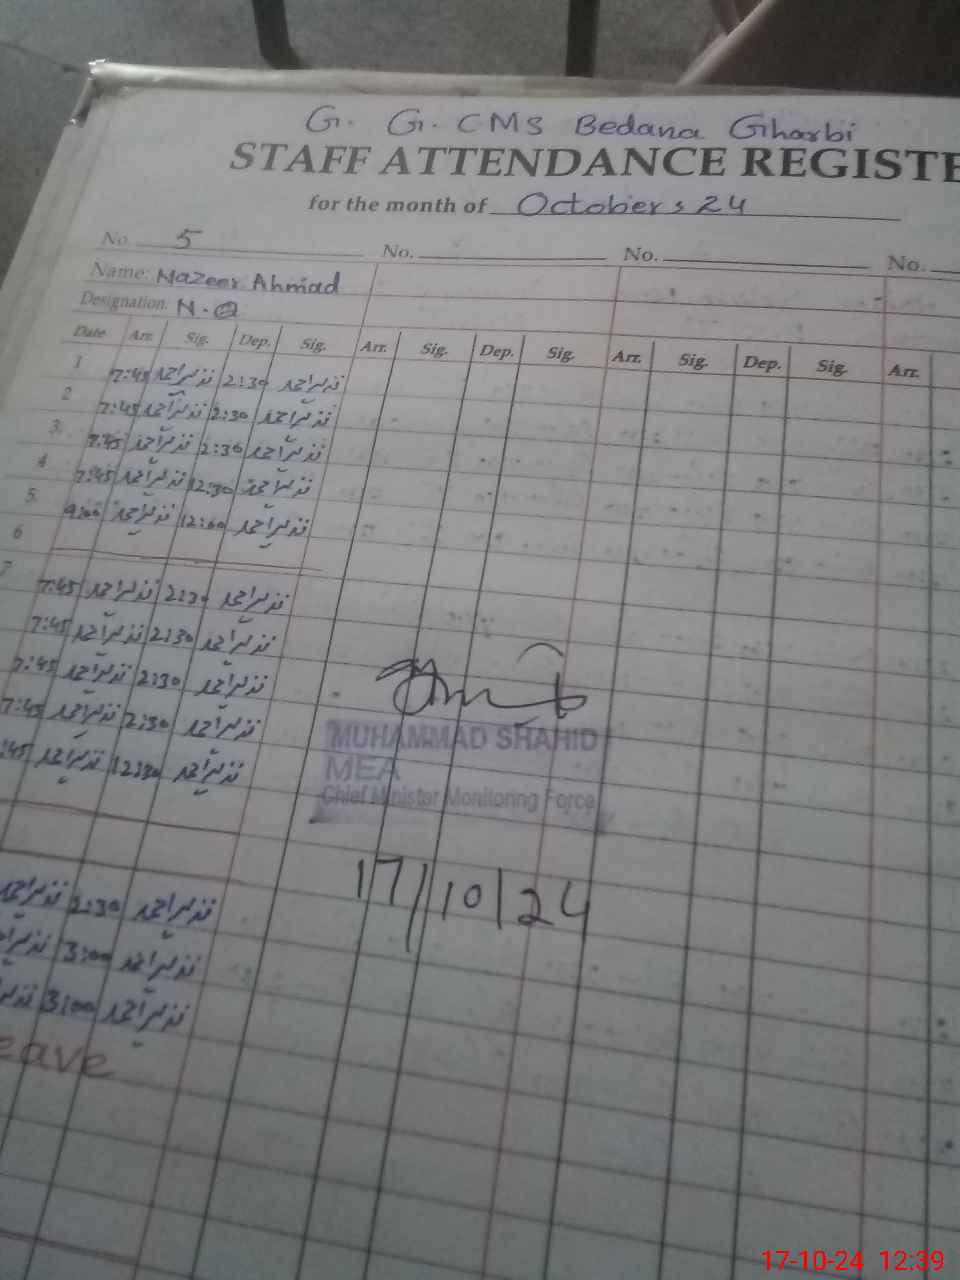 G. G. CMS Bedana Gharbi
STAFF ATTENDANCE REGISTE
for the month of October, 24
No. 5 No. No. No.
Name: Nazeer Ahmad
Designation. N.Q
Date Arr. Sig. Dep. Sig. Arr. Sig. Dep. Sig. Arr. Sig. Dep. Sig. Arr.
1 7:45 نذیر احمد 2:30 نذیر احمد
2 7:45 نذیر احمد 2:30 نذیر احمد
3. 7:45 نذیر احمد 2:30 نذیر احمد
4 7:45 نذیر احمد 12:30 نذیر احمد
5. 9:00 نذیر احمد 12:00 نذیر احمد
6
7 7:45 نذیر احمد 2:30 نذیر احمد
7:45 نذیر احمد 2:30 نذیر احمد
7:45 نذیر احمد 2:30 نذیر احمد
7:45 نذیر احمد 2:30 نذیر احمد
:45 نذیر احمد 12:30 نذیر احمد
MUHAMMAD SHAHID
MEA
Chief Minister Monitoring Force
17/10/24
نذیر احمد 2:30 نذیر احمد
نذیر احمد 3:00 نذیر احمد
نذیر 3:00 نذیر احمد
eave
17-10-24 12:39